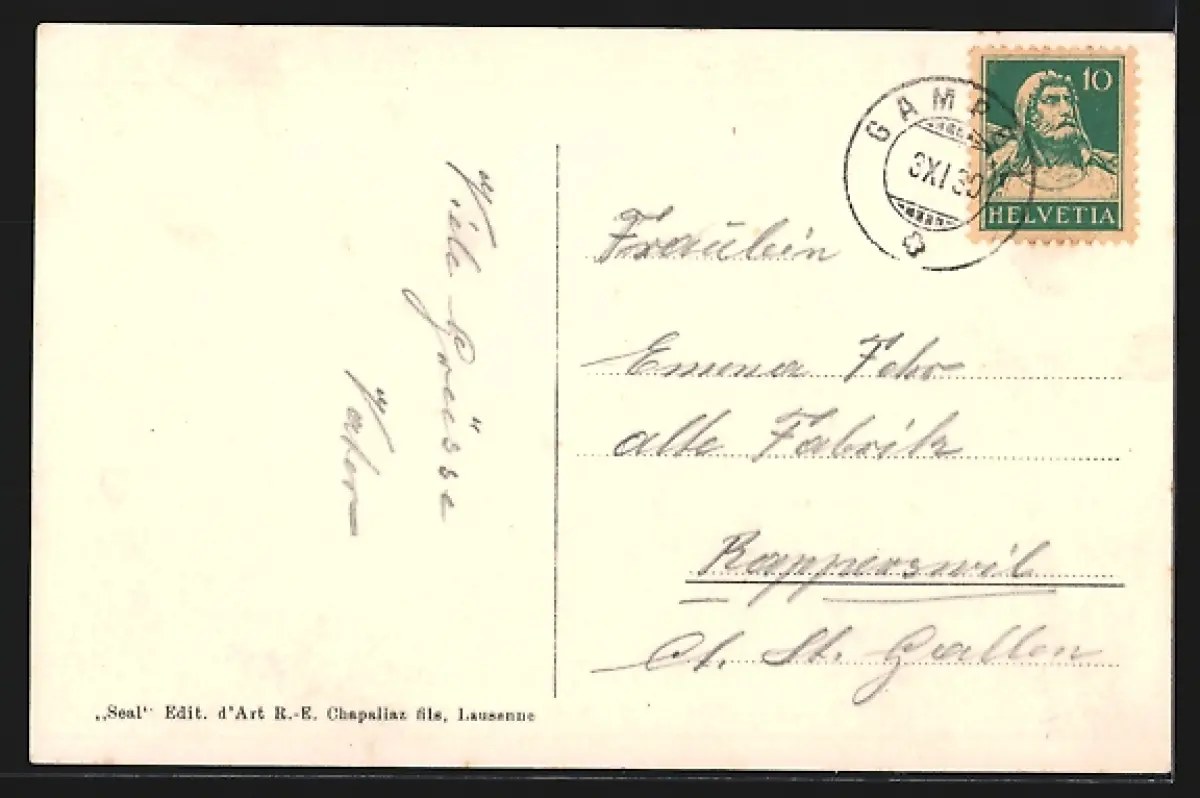 Viele Grüsse
Vater
"Seal" Edit. d'Art R.-E. Chapallaz fils, Lausenne
GAMPEL
3 XI 30
10
HELVETIA
Fräulein
Emma Fehr
alte Fabrik
Rapperswil
Ct. St. Gallen